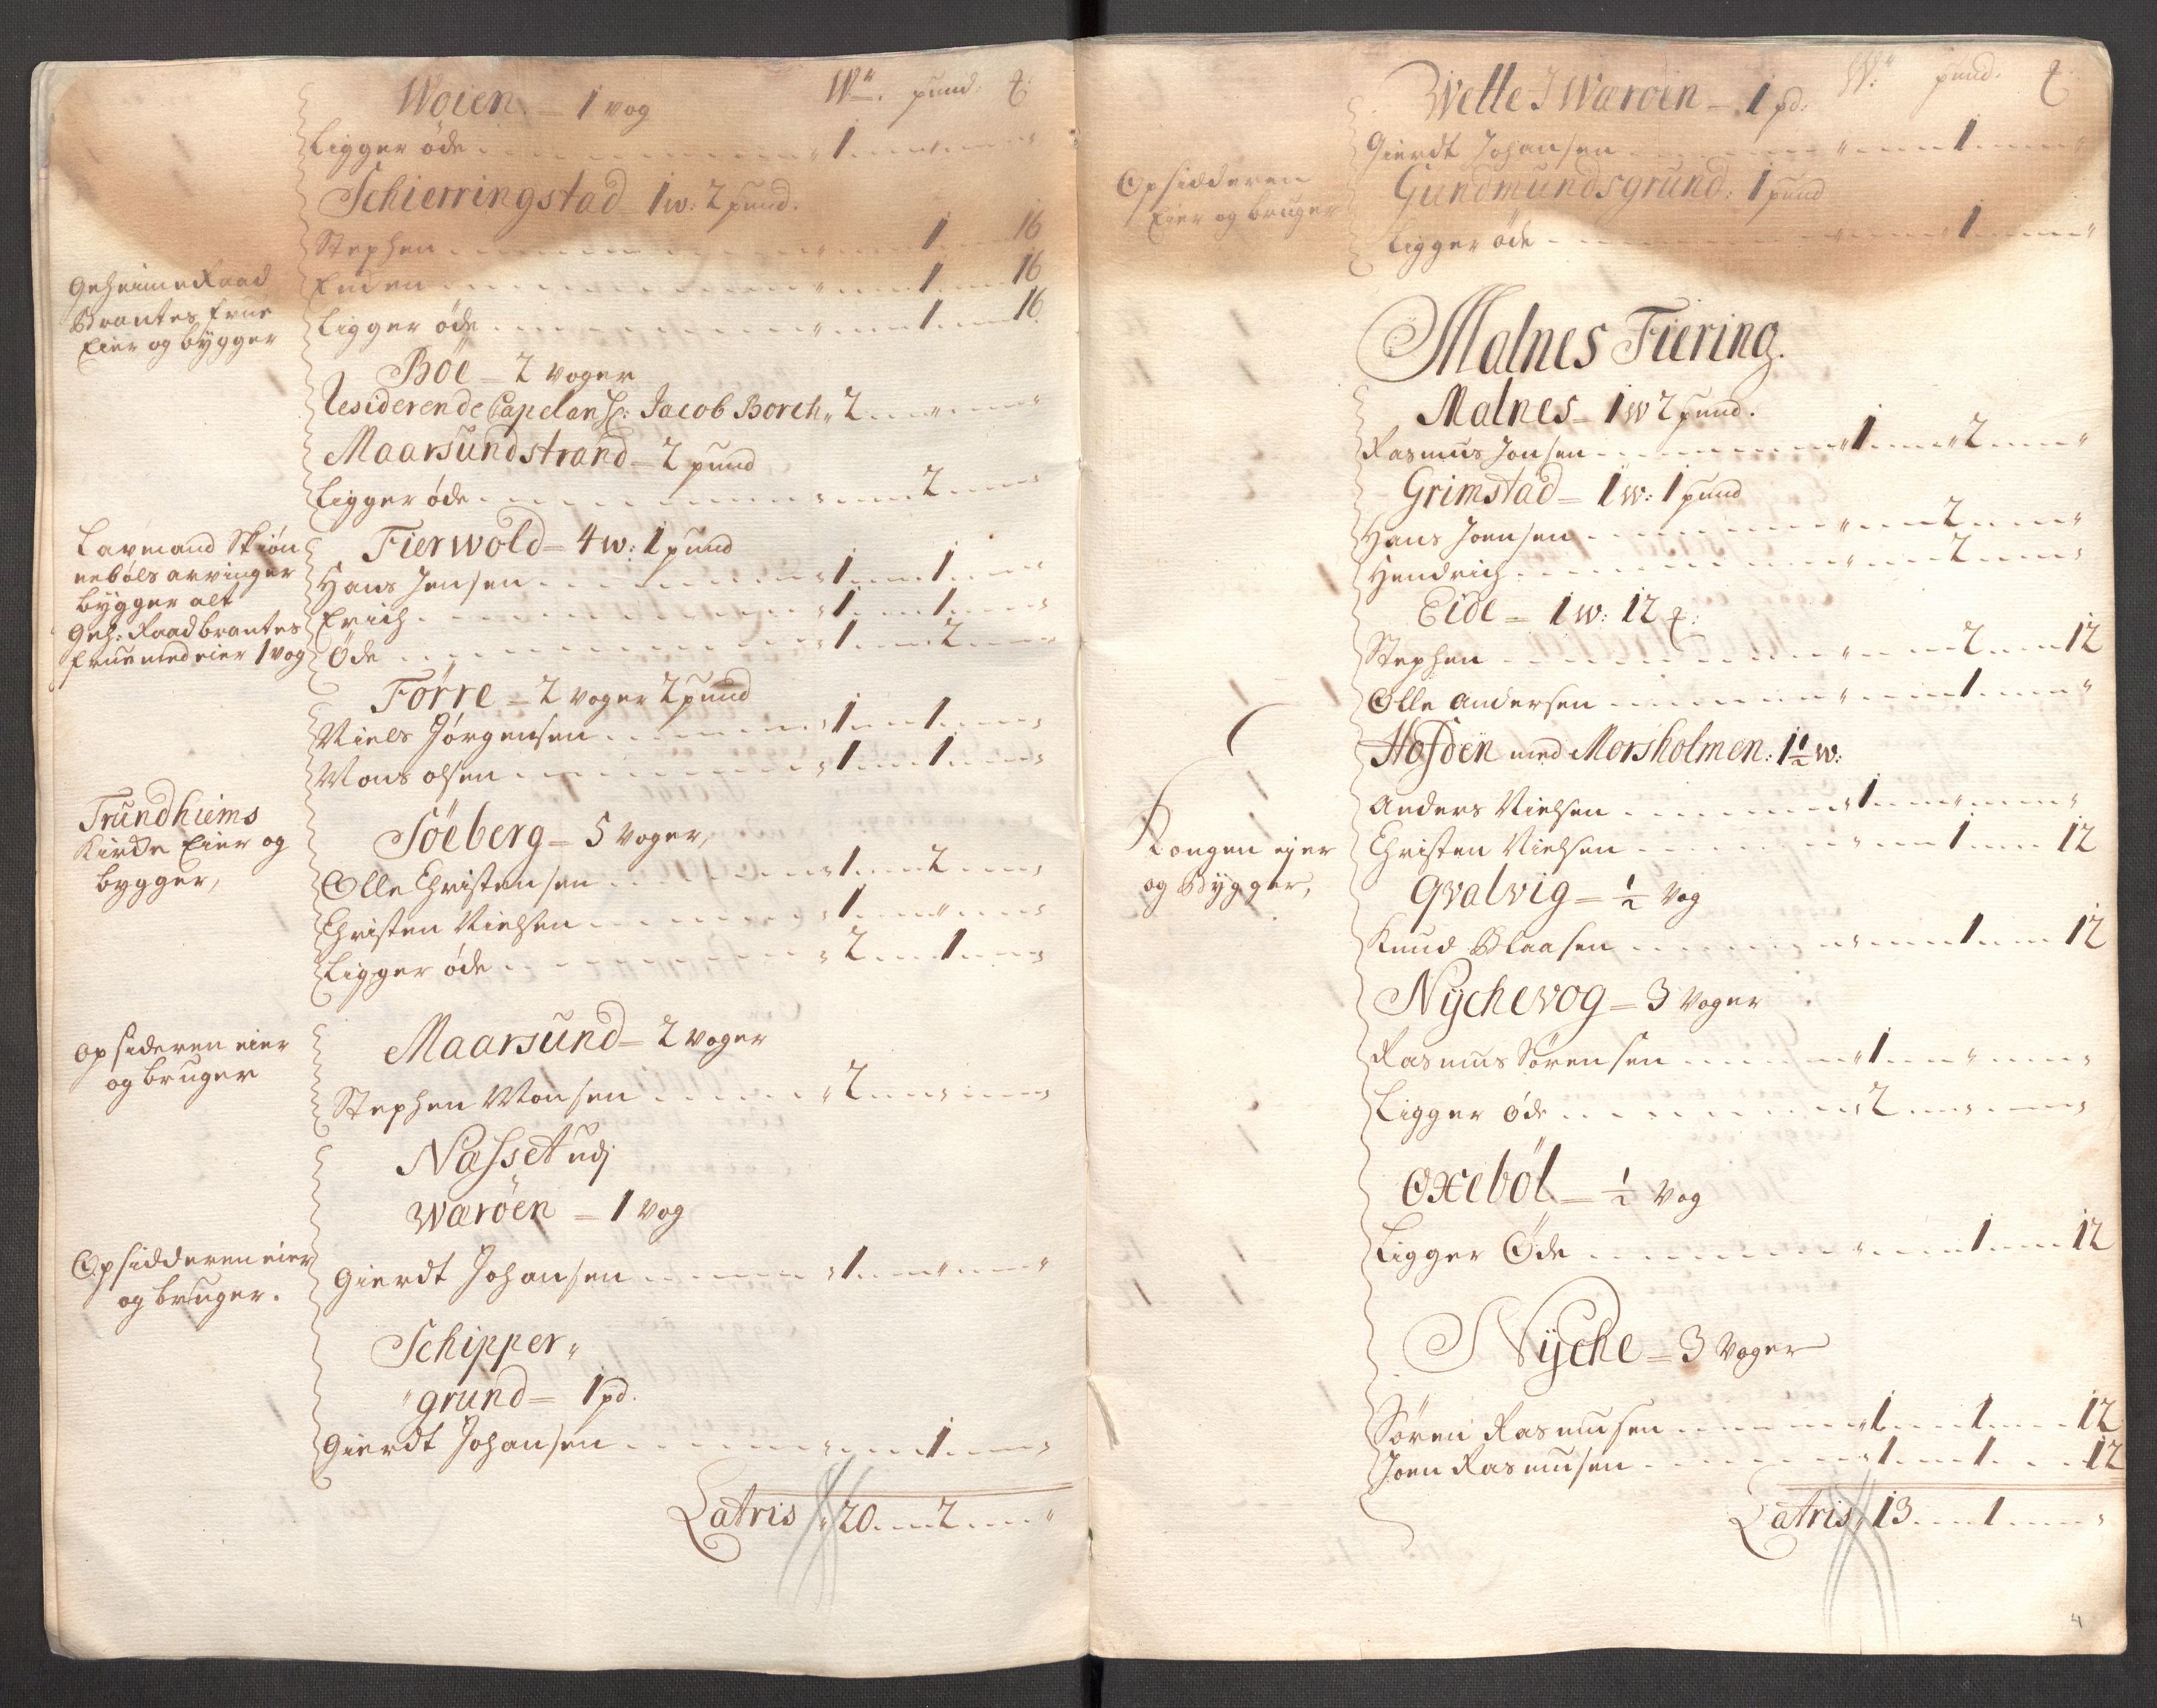 Woien = 1 vog   Wr. pund. ₰
Ligger öde . . . " 1 . . . "
Schierringstad 1 w: 2 pund.
Stephen . . . " . . . 1 . . . 16
Enden . . . " . . . 1 . . . 16
Geheime Raad
Brantes frue
Eier og bygger
Ligger öde . . . " . . . 1 . . . 16
Böe = 2 voger
Residerende Capelan Hr: Jacob Borch " 2 . . . " . . . "
Maarsundstrand = 2 pund
Ligger öde . . . " . . . 2 . . . "
Laumand Skiön
neböls arvinger
bygger alt
Geh: Raad brantes
frue med eier 1 vog
Fierwold = 4 w: 1 pund
Hans Jensen . . . " 1 . . . 1 . . . "
Erich . . . " 1 . . . 1 . . . "
Öde . . . " 1 . . . 2 . . . "
Förre = 2 voger 2 pund
Niels Jörgensen . . . " 1 . . . 1 . . . "
Mons olsen . . . " 1 . . . 1 . . . "
Trundhiems
Kirke Eier og
bygger,
Söeberg = 5 voger,
Olle Christensen . . . " 1 . . . 2 . . . "
Christen Nielsen . . . " 1 . . . " . . . "
Ligger öde . . . " 2 . . . 1 . . . "
Opsideren eier
og bruger
Maarsund = 2 voger
Stephen Monsen . . . " 2 . . . " . . . "
Næsset udj
Waröen = 1 vog
Opsidderen eier
og bruger.
Gierdt Johansen . . . " 1 . . . " . . . "
Schipper "
" grund = 1 pd.
Gierdt Johansen . . . " . . . 1 . . . "
Latris " 20 . . . 2 . . . "
Welle J Waröen = 1 pd:   Wr. pund. ₰
Gierdt Johansen . . . " . . . 1 . . . "
Opsidderen
Eier og bruger
Gundmundsgrund: 1 pund
Ligger öde . . . " . . . 1 . . . "
Malnes Fiering.
Malnes = 1 w 2 pund.
Rasmus Jonsen . . . " 1 . . . 2 . . . "
Grimstad = 1 w: 1 pund
Hans Joensen . . . " . . . 2 . . . "
Hendrich . . . " . . . 2 . . . "
Eide = 1 w: 12 ₰:
Stephen . . . " . . . 2 . . . 12
Olle Andersen . . . " . . . 1 . . . "
Hofden med Morsholmen: 1½ w:
Anders Nielsen . . . " 1 . . . " . . . "
Kongen ejer
og Bygger,
Christen Nielsen . . . " . . . 1 . . . 12
Qvalvig = ½ vog
Knud Olaasen . . . " . . . 1 . . . 12
Nychevog = 3 voger
Rasmus Sörensen . . . " 1 . . . " . . . "
Ligger öde . . . " 2 . . . " . . . "
Oxeböl = ½ vog
Ligger Öde . . . " . . . 1 . . . 12
Nyche = 3 voger
Sören Rasmusen . . . " 1 . . . 1 . . . 12
Joen Rasmusen . . . " 1 . . . 1 . . . 12
Latris " 13 . . . 1 . . . "
4